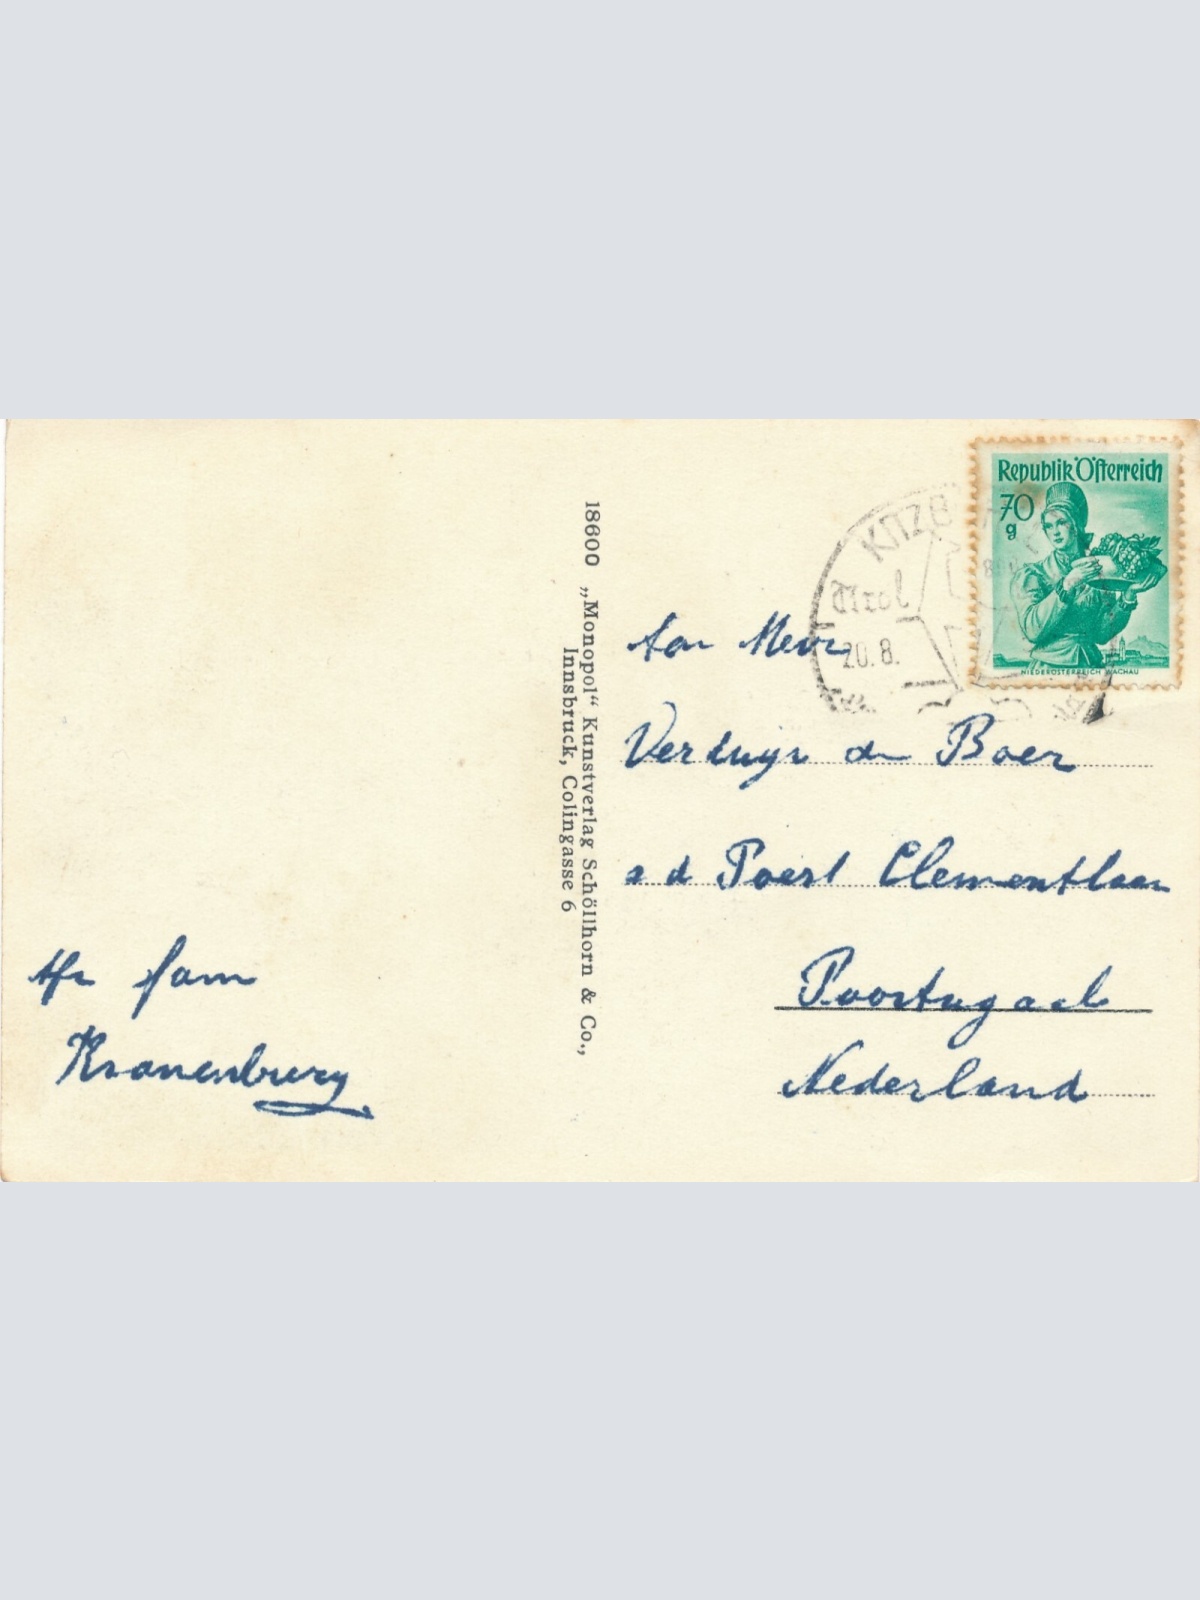 Republik Österreich
70
g
NIEDERÖSTERREICH WACHAU
KITZB
Tirol
20.8.
18600 „Monopol“ Kunstverlag Schöllhorn & Co.,
Innsbruck, Colingasse 6
Aan Mevr
Verluijs de Boer
a d Poest Clementlaan
Poortugaal
Nederland
Afz fam
Kronenburg